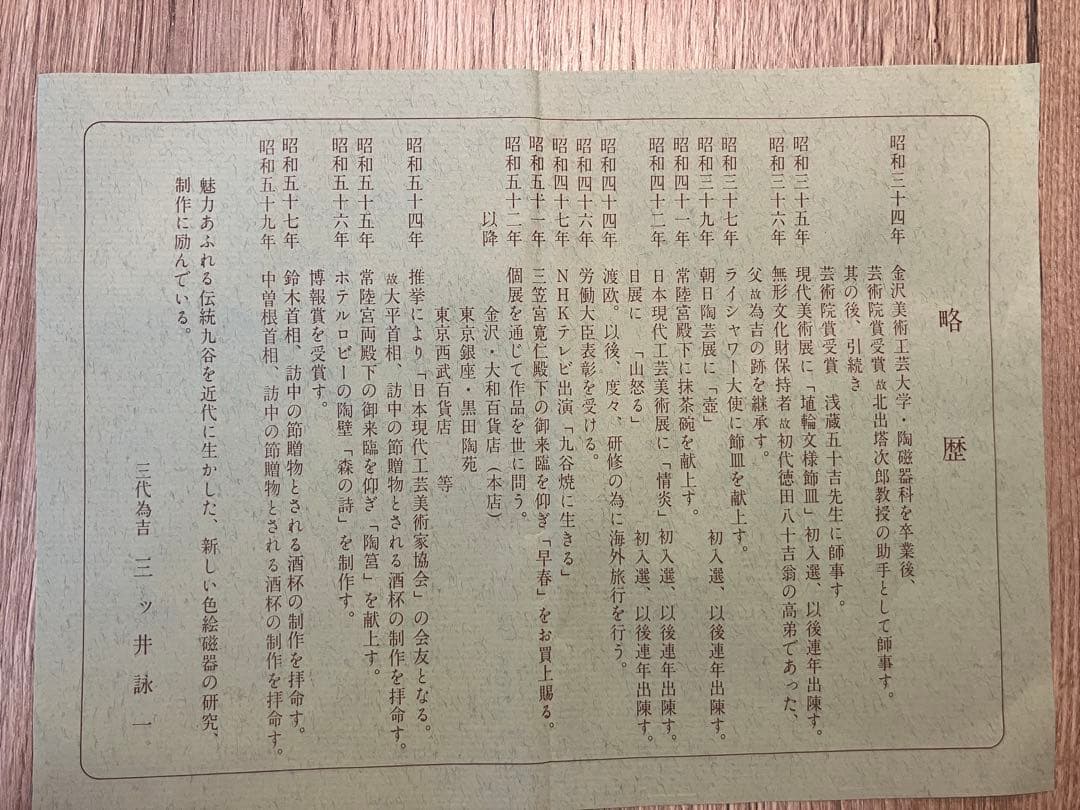 略歴
昭和三十四年　金沢美術工芸大学・陶磁器科を卒業後、
芸術院賞受賞 故北出塔次郎教授の助手として師事す。
其の後、引続き
芸術院賞受賞　浅蔵五十吉先生に師事す。
昭和三十五年　現代美術展に「埴輪文様飾皿」初入選、以後連年出陳す。
昭和三十六年　無形文化財保持者 故初代徳田八十吉翁の高弟であった、
父 故為吉の跡を継承す。
昭和三十七年　ライシャワー大使に飾皿を献上す。
昭和三十九年　朝日陶芸展に「壺」　初入選、以後連年出陳す。
昭和四十一年　常陸宮殿下に抹茶碗を献上す。
昭和四十二年　日本現代工芸美術展に「情炎」　初入選、以後連年出陳す。
日展に　「山怒」　初入選、以後連年出陳す。
昭和四十四年　渡欧。以後、度々、研修の為に海外旅行を行う。
昭和四十六年　労働大臣表彰を受ける。
昭和四十七年　NHKテレビ出演「九谷焼に生きる」
昭和五十一年　三笠宮寛仁殿下の御来臨を仰ぎ「早春」をお買上賜る。
昭和五十二年　個展を通じて作品を世に問う。
以降　金沢・大和百貨店（本店）
東京銀座・黒田陶苑
東京西武百貨店　等
昭和五十四年　推挙により「日本現代工芸美術家協会」の会友となる。
故大平首相、訪中の節贈物とされる酒杯の制作を拝命す。
昭和五十五年　常陸宮両殿下の御来臨を仰ぎ「陶筥」を献上す。
昭和五十六年　ホテルロビーの陶壁「森の詩」を制作す。
博報賞を受賞す。
昭和五十七年　鈴木首相、訪中の節贈物とされる酒杯の制作を拝命す。
昭和五十九年　中曽根首相、訪中の節贈物とされる酒杯の制作を拝命す。
魅力あふれる伝統九谷を近代に生かした、新しい色絵磁器の研究、
制作に励んでいる。
三代為吉　三ッ井詠一